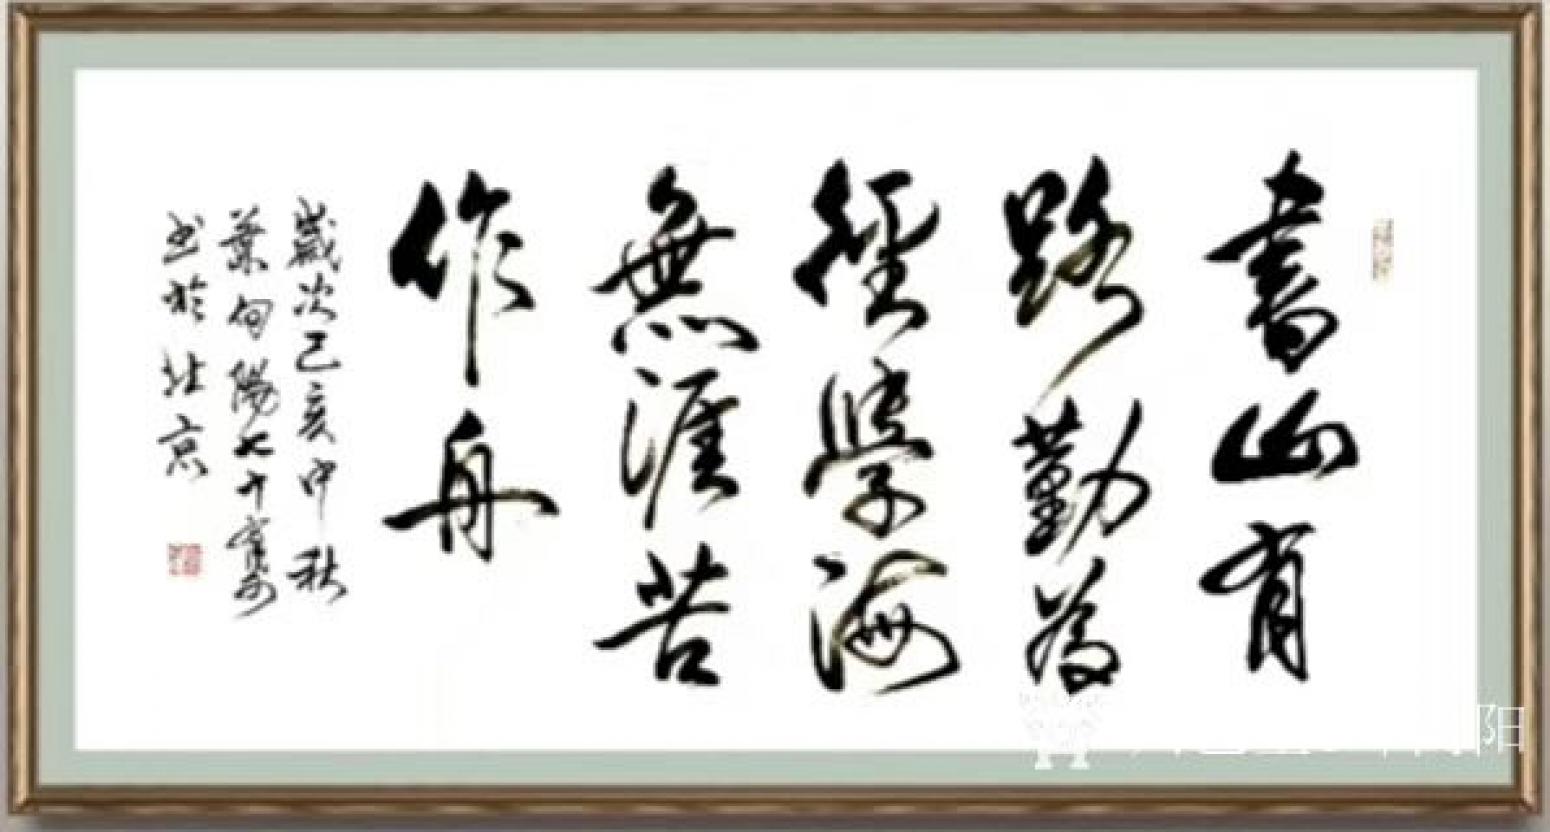 書山有
路勤為
徑學海
無涯苦
作舟
歲次己亥中秋
葉向陽七十有
书於北京
阳